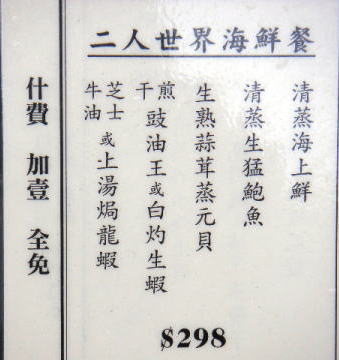 二人世界海鮮餐
清蒸海上鮮
清蒸生猛鮑魚
生熟蒜茸蒸元貝
干煎豉油王或白灼生蝦
牛油芝士或上湯焗龍蝦
$298
什費 加壹 全免